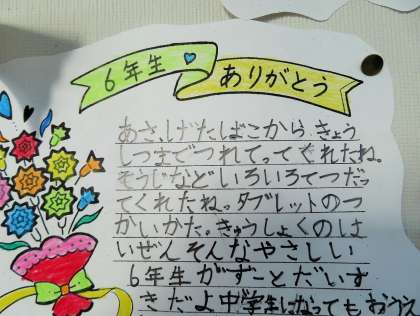 6年生
ありがとう
あさ、げたばこから、きょう
しつまでつれてってくれたね。
そうじなどいろいろてつだっ
てくれたね。タブレットのつ
かいかた。きゅうしょくのは
いぜんそんなやさしい
6年生がずーとだいす
きだよ中学生になっても